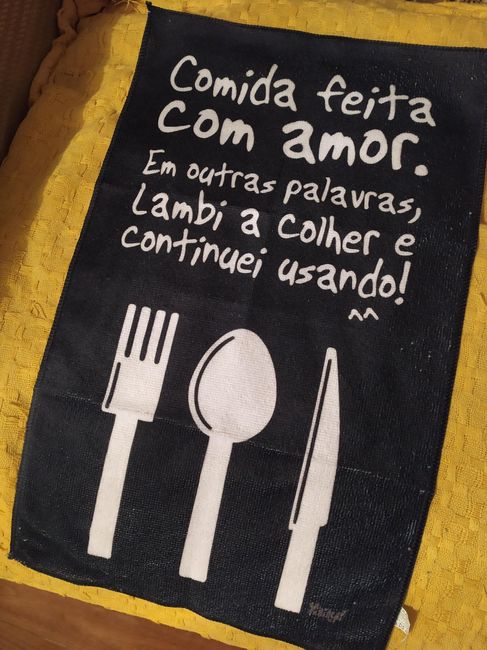 Comida feita
com amor.
Em outras palavras,
Lambi a colher e
continuei usando!
^^